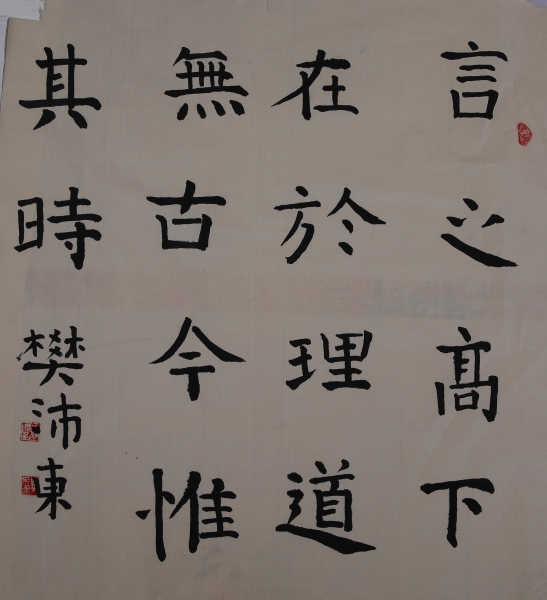 言之高下
在於理道
無古今惟
其時樊沛東